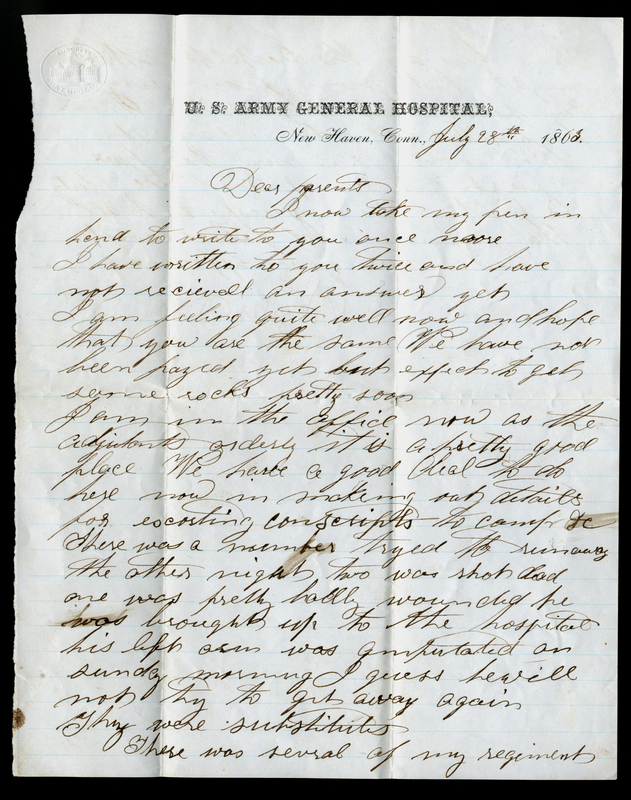 U. S. ARMY GENERAL HOSPITAL,
New Haven, Conn., July 28th 1863.
Dear parents
I now take my pen in
hend to write to you once more
I have written to you twice and have
not recieved an answer yet
I am feeling quite well now and hope
that you are the same We have not
been payed yet but expect to get
some rocks pretty soon
I am in the office now as the
adjutants orderly it is a pretty good
place We have a good deal to do
here now in making out details
for escorting conscripts to camp &c
There was a number tryed to runaway
the other night two was shot dad
one was pretty badly wounded he
was brought up to the hospital
his left arm was amputated on
sunday morning I guess he will
not try to get away again
They were substitutes
There was several of my regiment